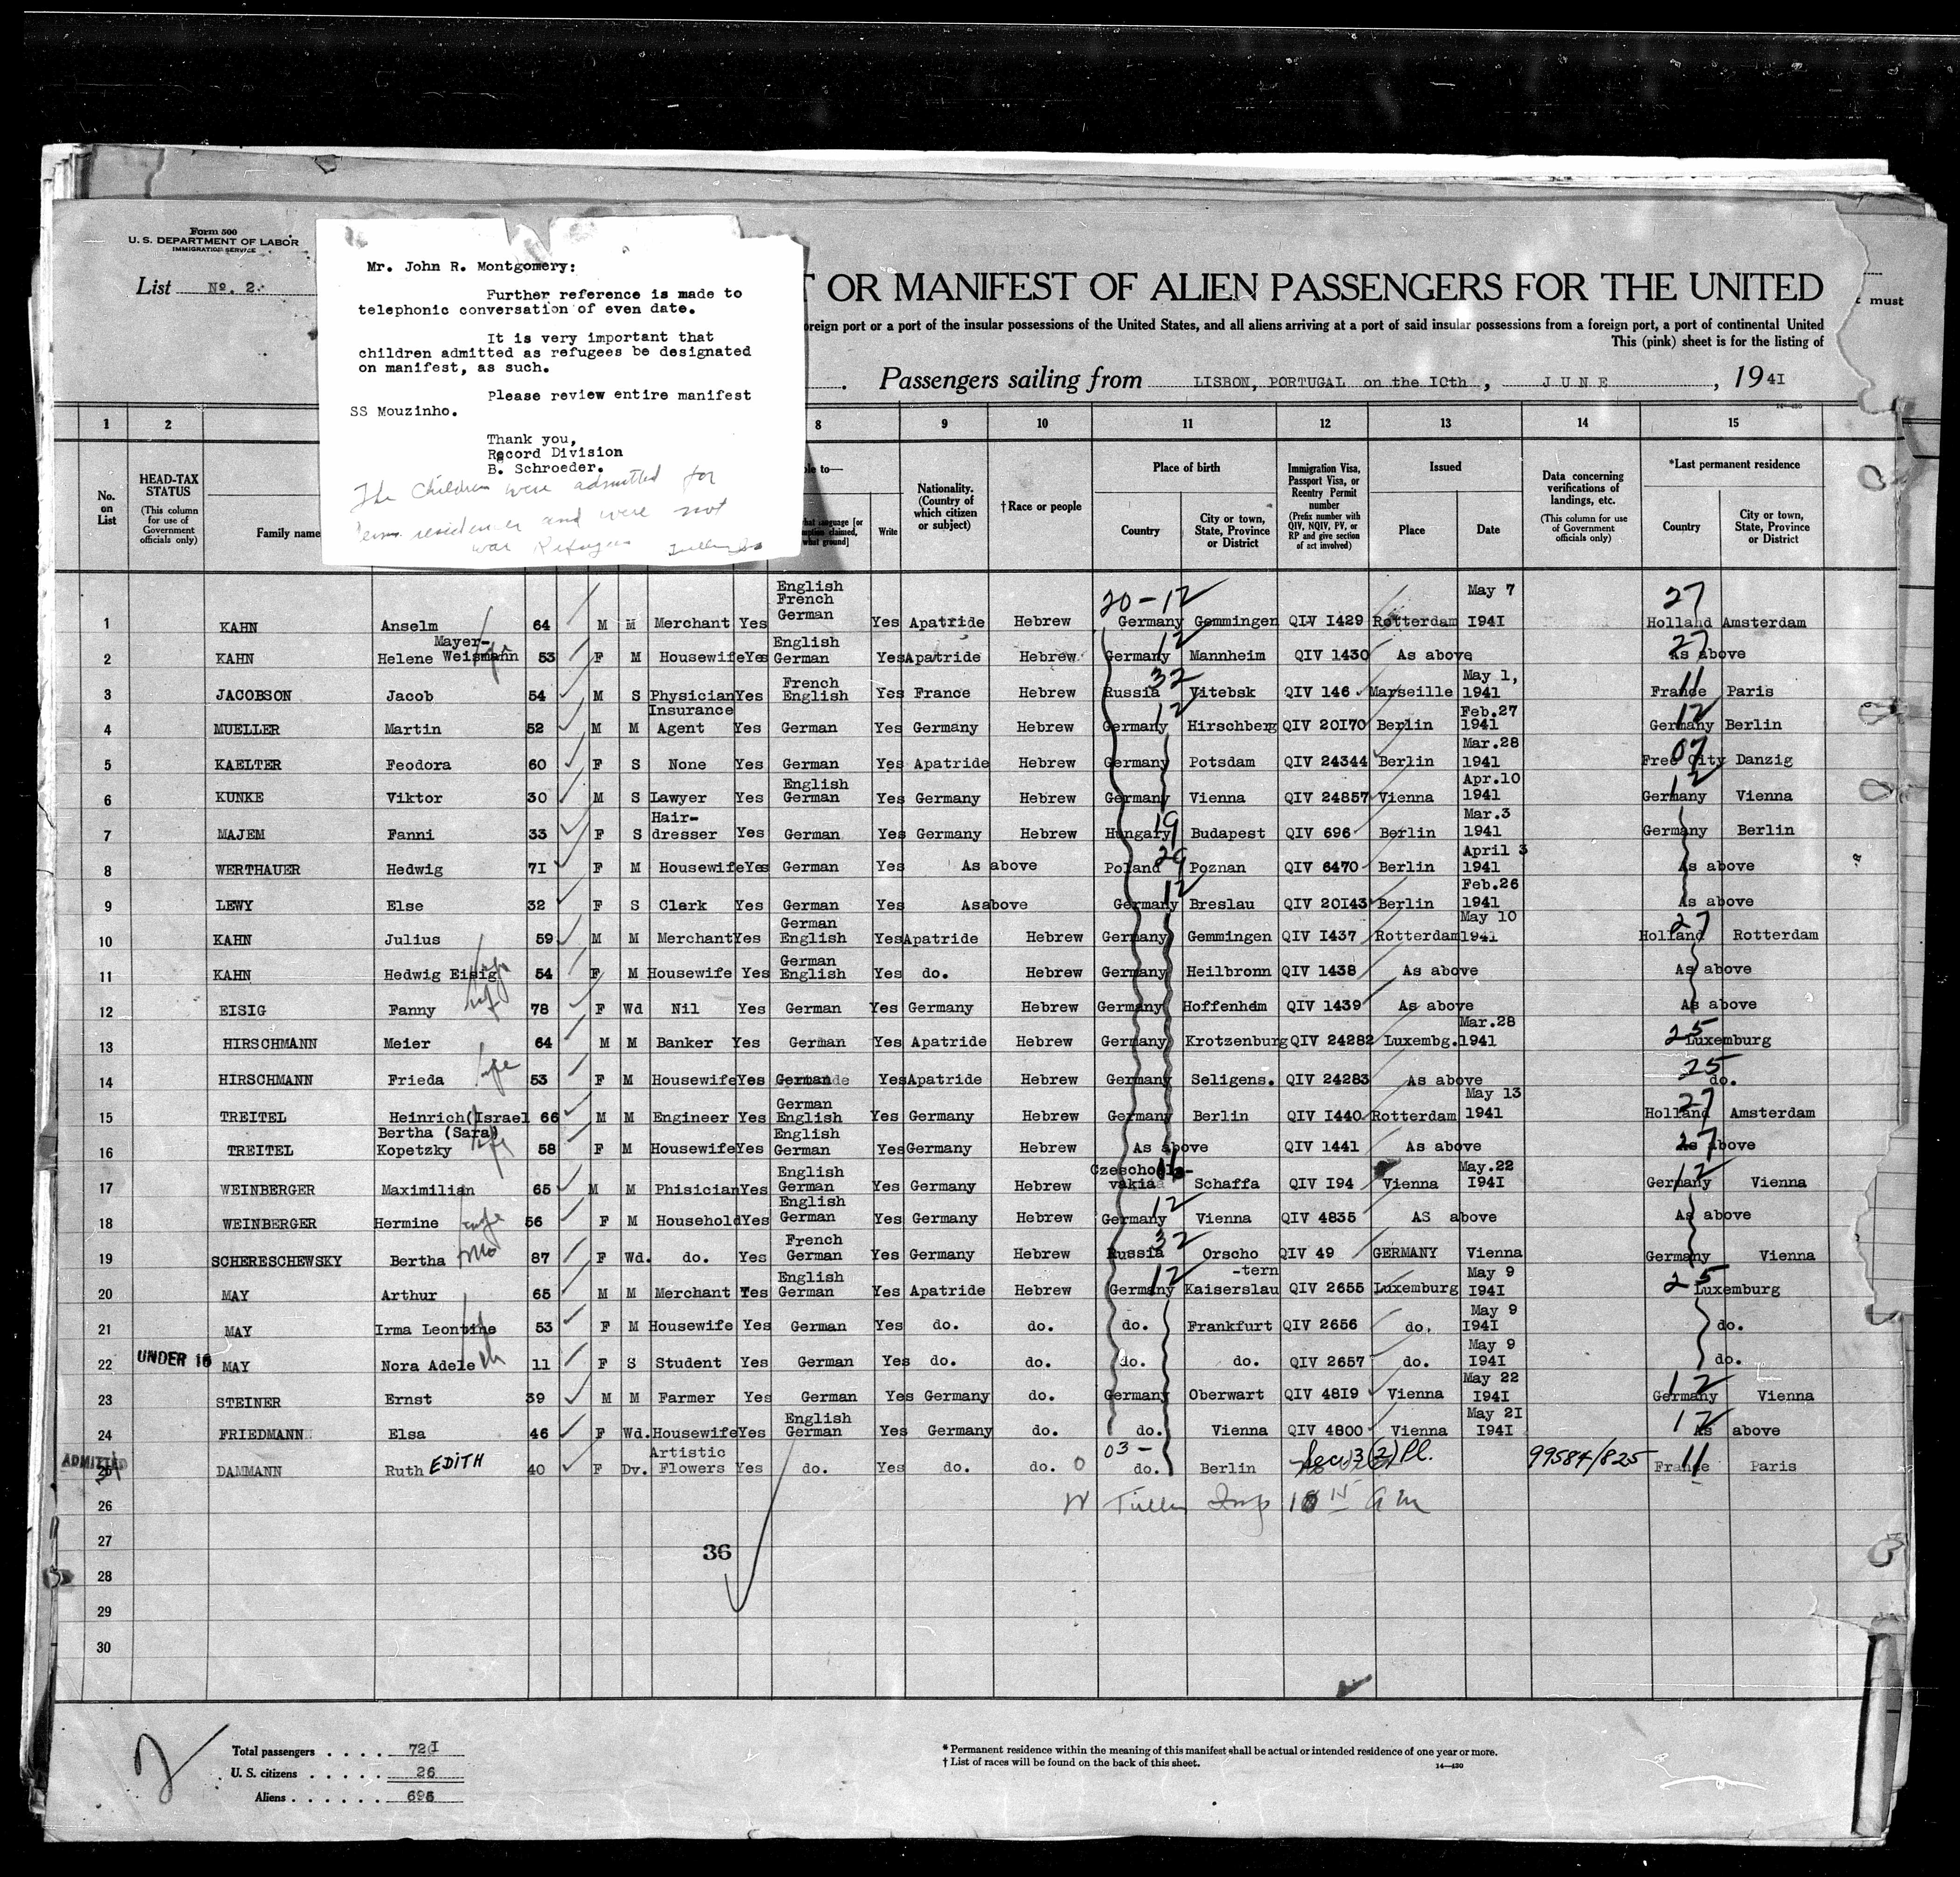 Form 500
U. S. DEPARTMENT OF LABOR
IMMIGRATION SERVICE
List No. 2.
Mr. John R. Montgomery:
Further reference is made to
telephonic conversation of even date.
It is very important that
children admitted as refugees be designated
on manifest, as such.
Please review entire manifest
SS Mouzinho.
Thank you,
Record Division
B. Schroeder.
The Children were admitted for
Perm. residence and were not
war Refugees
T OR MANIFEST OF ALIEN PASSENGERS FOR THE UNITED
must
oreign port or a port of the insular possessions of the United States, and all aliens arriving at a port of said insular possessions from a foreign port, a port of continental United
This (pink) sheet is for the listing of
Passengers sailing from LISBON, PORTUGAL on the 10th, JUNE, 1941
1 2 8 9 10 11 12 13 14 15
No. on List
HEAD-TAX STATUS (This column for use of Government officials only)
Family name
Write
Nationality. (Country of which citizen or subject)
†Race or people
Place of birth
Country
City or town, State, Province or District
Immigration Visa, Passport Visa, or Reentry Permit number (Prefix number with QIV, NQIV, PV, or RP and give section of act involved)
Issued
Place
Date
Data concerning verifications of landings, etc. (This column for use of Government officials only)
*Last permanent residence
Country
City or town, State, Province or District
1 KAHN Anselm 64 M M Merchant Yes English French German Yes Apatride Hebrew 20-12 Germany Gemmingen QIV I429 Rotterdam May 7 I94I 27 Holland Amsterdam
2 KAHN Helene Mayer-Weismann wife 53 F M Housewife Yes English German Yes Apatride Hebrew 12 Germany Mannheim QIV 1430 As above 27 As above
3 JACOBSON Jacob 54 M S Physician Yes French English Yes France Hebrew 32 Russia Vitebsk QIV 146 Marseille May 1, 1941 11 France Paris
4 MUELLER Martin 52 M M Insurance Agent Yes German Yes Germany Hebrew 12 Germany Hirschberg QIV 20I70 Berlin Feb.27 1941 12 Germany Berlin
5 KAELTER Feodora 60 F S None Yes German Yes Apatride Hebrew Germany Potsdam QIV 24344 Berlin Mar.28 1941 07 Free City Danzig
6 KUNKE Viktor 30 M S Lawyer Yes English German Yes Germany Hebrew Germany Vienna QIV 24857 Vienna Apr.10 1941 12 Germany Vienna
7 MAJEM Fanni 33 F S Hair-dresser Yes German Yes Germany Hebrew 19 Hungary Budapest QIV 696 Berlin Mar.3 1941 Germany Berlin
8 WERTHAUER Hedwig 7I F M Housewife Yes German Yes As above 29 Poland Poznan QIV 6470 Berlin April 3 1941 As above
9 LEWY Else 32 F S Clerk Yes German Yes Asabove 12 Germany Breslau QIV 20I43 Berlin Feb.26 1941 As above
10 KAHN Julius 59 M M Merchant Yes German English Yes Apatride Hebrew Germany Gemmingen QIV I437 Rotterdam May 10 1941 27 Holland Rotterdam
11 KAHN Hedwig Eisig wife 54 F M Housewife Yes German English Yes do. Hebrew Germany Heilbronn QIV 1438 As above As above
12 EISIG Fanny 78 F Wd Nil Yes German Yes Germany Hebrew Germany Hoffenheim QIV 1439 As above As above
13 HIRSCHMANN Meier 64 M M Banker Yes German Yes Apatride Hebrew Germany Krotzenburg QIV 24282 Luxembg. Mar.28 1941 25 Luxemburg
14 HIRSCHMANN Frieda wife 53 F M Housewife Yes German Yes Apatride Hebrew Germany Seligens. QIV 24283 As above 25 do.
15 TREITEL Heinrich(Israel 66 M M Engineer Yes German English Yes Germany Hebrew Germany Berlin QIV I440 Rotterdam May 13 1941 27 Holland Amsterdam
16 TREITEL Bertha (Sara) Kopetzky wife 58 F M Housewife Yes English German Yes Germany Hebrew As above QIV 1441 As above 27 As above
17 WEINBERGER Maximilian 65 M M Phisician Yes English German Yes Germany Hebrew Czeschoslo-vakia Schaffa QIV I94 Vienna May.22 I94I 12 Germany Vienna
18 WEINBERGER Hermine wife 56 F M Household Yes English German Yes Germany Hebrew 12 Germany Vienna QIV 4835 AS above As above
19 SCHERESCHEWSKY Bertha Mo 87 F Wd. do. Yes French German Yes Germany Hebrew 32 Russia Orscho QIV 49 GERMANY Vienna Germany Vienna
20 MAY Arthur 65 M M Merchant Yes English German Yes Apatride Hebrew 12 Germany Kaiserslau-tern QIV 2655 Luxemburg May 9 I94I 25 Luxemburg
21 MAY Irma Leontine 53 F M Housewife Yes German Yes do. do. do. Frankfurt QIV 2656 do. May 9 I94I do.
22 UNDER 16 MAY Nora Adele 11 F S Student Yes German Yes do. do. do. do. QIV 2657 do. May 9 I94I do.
23 STEINER Ernst 39 M M Farmer Yes German Yes Germany do. Germany Oberwart QIV 48I9 Vienna May 22 I94I 12 Germany Vienna
24 FRIEDMANN Elsa 46 F Wd. Housewife Yes English German Yes Germany do. do. Vienna QIV 4800 Vienna May 2I I94I 12 As above
ADMITTED 25 DAMMANN Ruth EDITH 40 F Dv. Artistic Flowers Yes do. Yes do. do. 03- do. Berlin Sec. 3(2) Pl. 99584/825 11 France Paris
26
27
28
29
30
36
2
Total passengers . . . . 72I
U. S. citizens . . . . . 26
Aliens . . . . . . 695
* Permanent residence within the meaning of this manifest shall be actual or intended residence of one year or more.
† List of races will be found on the back of this sheet.
14—430